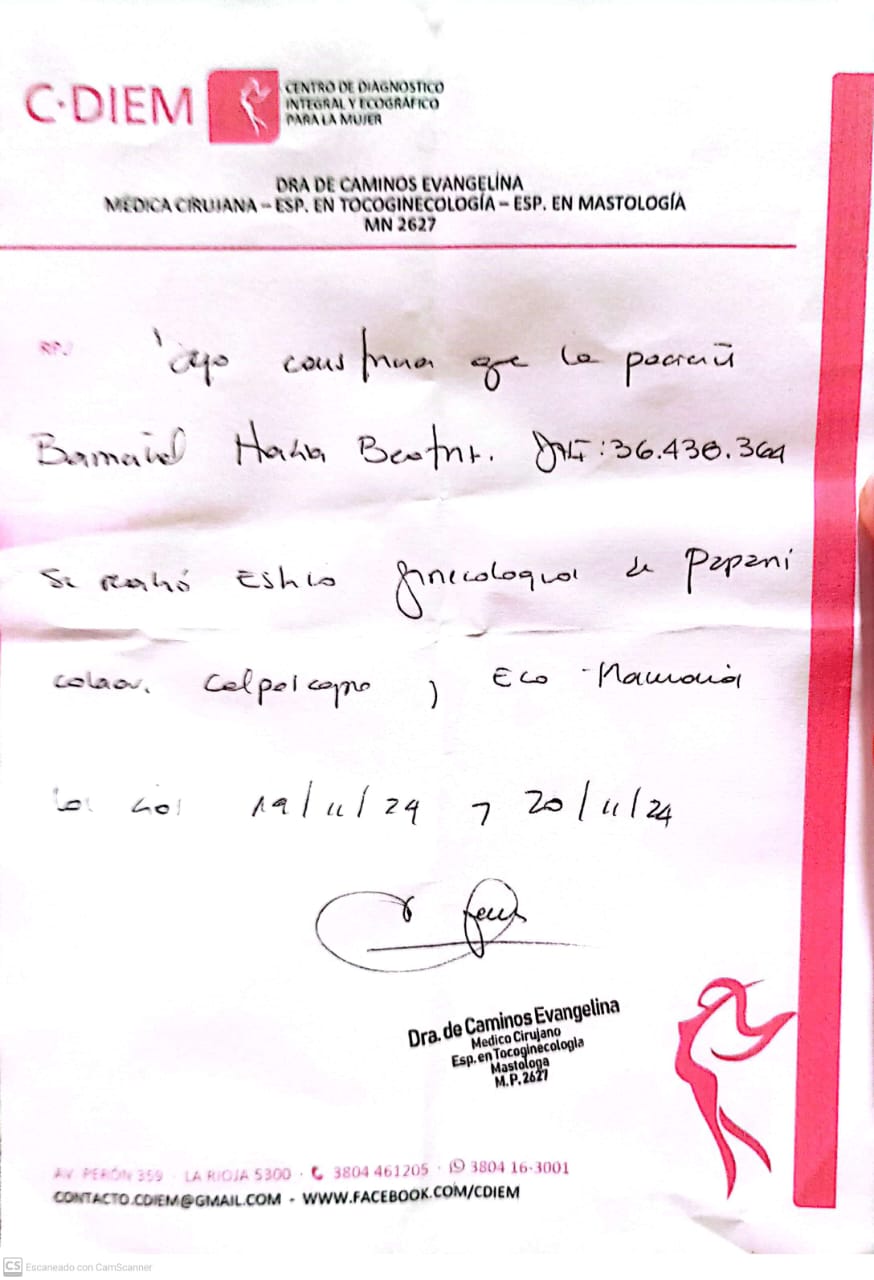 C·DIEM
CENTRO DE DIAGNOSTICO
INTEGRAL Y ECOGRÁFICO
PARA LA MUJER
DRA DE CAMINOS EVANGELINA
MÉDICA CIRUJANA – ESP. EN TOCOGINECOLOGÍA – ESP. EN MASTOLOGÍA
MN 2627
RP./
Dejo constancia que la paciente
María Beatriz. DNI: 36.430.364
Se realizó Estudio ginecologico de Papani
colaou, Colposcopia y Eco Mamaria
los dias 19/11/24 y 20/11/24
Dra. de Caminos Evangelina
Medico Cirujano
Esp. en Tocoginecologia
Mastologa
M.P. 2627
AV. PERÓN 359 · LA RIOJA 5300 · 3804 461205 · 3804 16-3001
CONTACTO.CDIEM@GMAIL.COM - WWW.FACEBOOK.COM/CDIEM
CS Escaneado con CamScanner